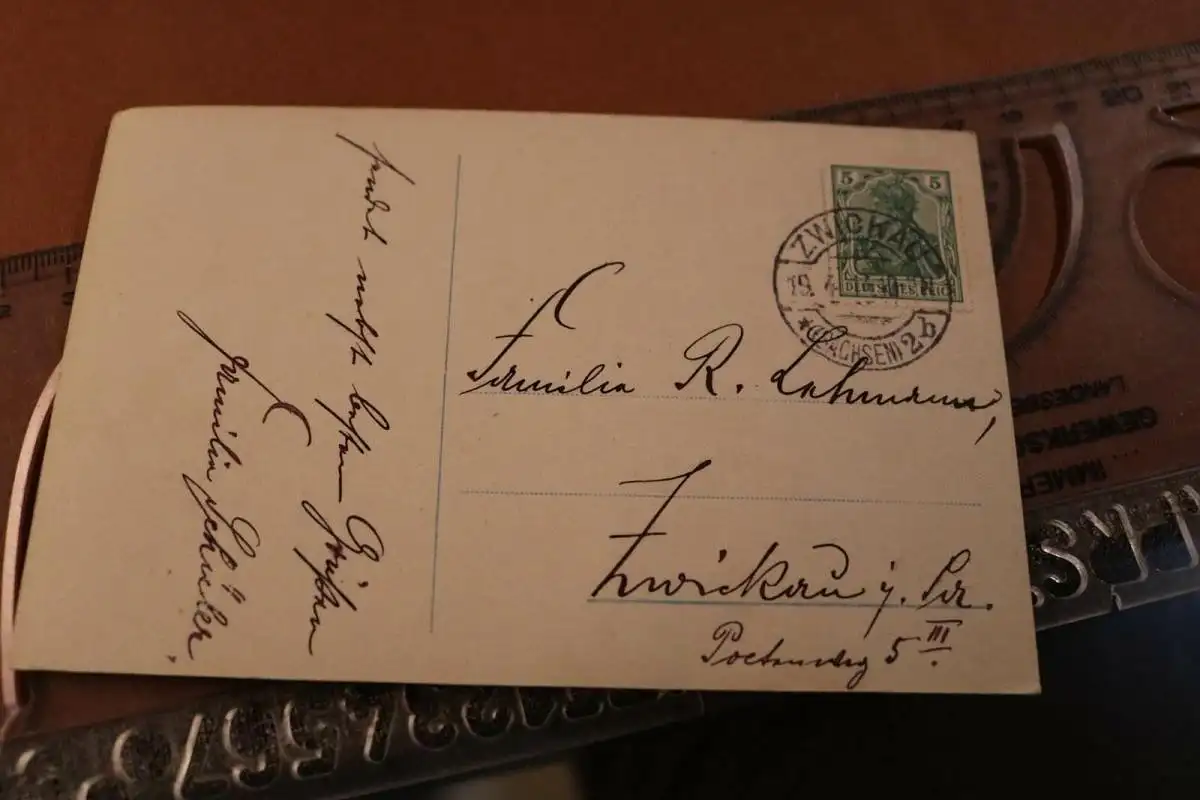 sendet nebst besten Grüßen
Familie Schüler.
5 5
DEUTSCHES REICH
ZWICKAU
19. 4.
* (SACHSEN) 2 b
Familie R. Lehmann,
Zwickau i. Sa.
Poetenweg 5 III.
IMMER ...
GEWERKS
LANDESB